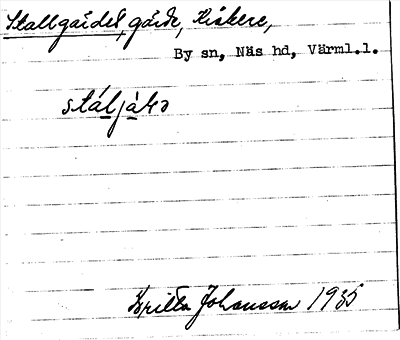 Stallgärdet, gärde, Kråkere,
By sn, Näs hd, Värml.l.
stáljàɫə
Britta Johansson 1935